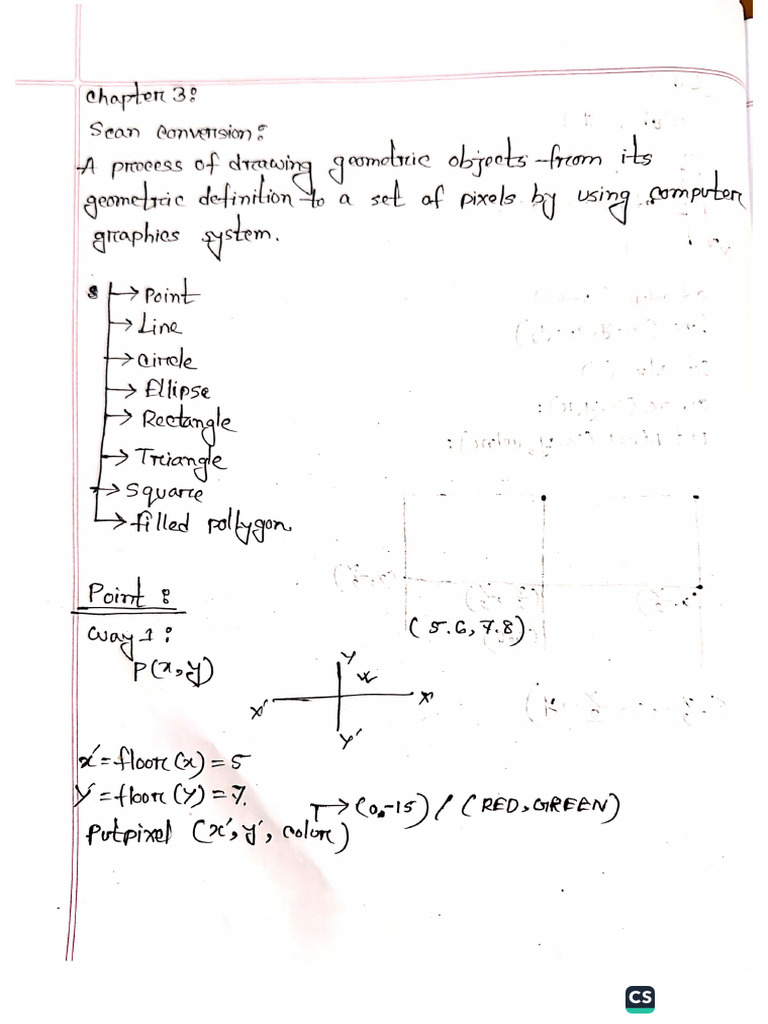 Chapter 3:
Scan Conversion:
A process of drawing geometric objects from its
geometric definition to a set of pixels by using computer
graphics system.
→ Point
→ Line
→ Circle
→ Ellipse
→ Rectangle
→ Triangle
→ Square
→ filled polygon
Point :
(5.6, 7.8)
Way 1:
P(x,y)
Y
X' X
Y'
x' = floor(x) = 5
y' = floor(y) = 7.
→ (0-15) / (RED, GREEN)
Putpixel (x', y', color)
CS